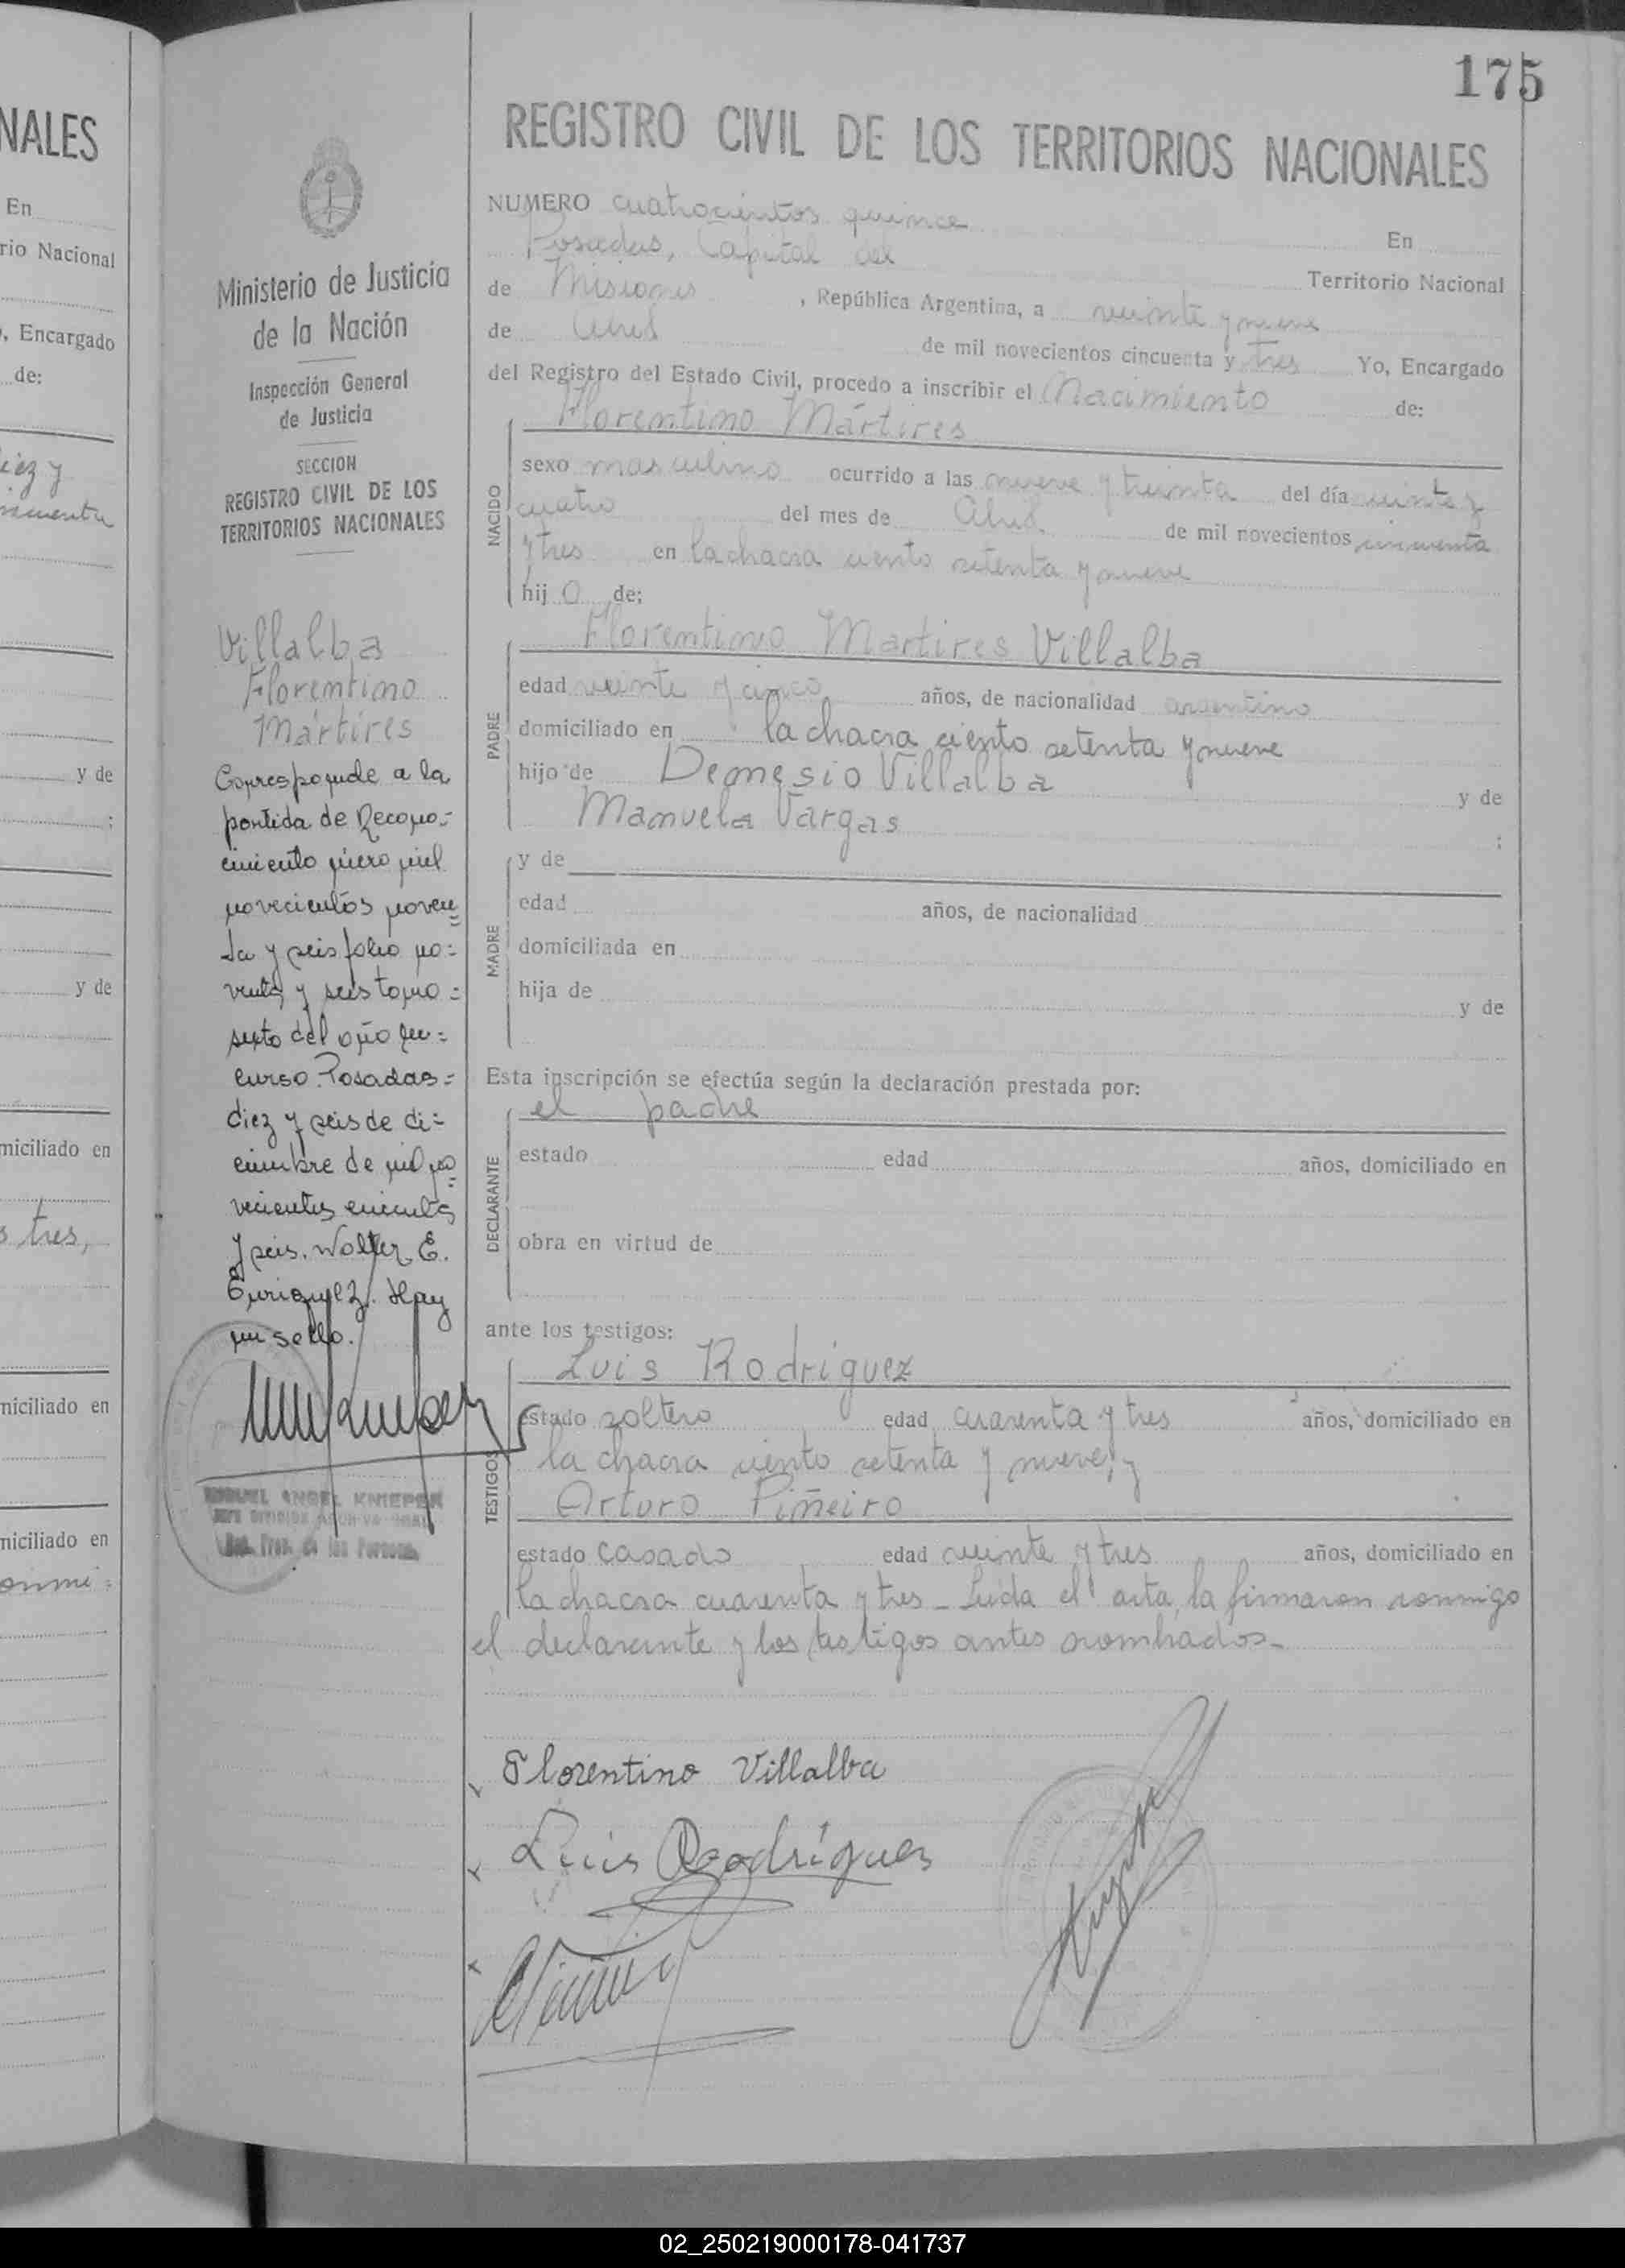 175
REGISTRO CIVIL DE LOS TERRITORIOS NACIONALES
NUMERO cuatrocientos quince
En
Posadas, Capital del
Territorio Nacional
de Misiones , República Argentina, a veinte y nueve
de Abril de mil novecientos cincuenta y tres Yo, Encargado
del Registro del Estado Civil, procedo a inscribir el Nacimiento de:
Florentino Mártires
NACIDO
sexo masculino ocurrido a las nueve y treinta del día veinte y
cuatro del mes de Abril de mil novecientos cincuenta
y tres en la chacra ciento setenta y nueve
hij o de:
Florentino Martires Villalba
PADRE
edad veinte y cinco años, de nacionalidad argentino
domiciliado en la chacra ciento setenta y nueve
hijo de Demesio Villalba y de
Manuela Vargas ;
MADRE
y de
edad años, de nacionalidad
domiciliada en
hija de y de
Esta inscripción se efectúa según la declaración prestada por:
el padre
DECLARANTE
estado edad años, domiciliado en
obra en virtud de
ante los testigos:
Luis Rodriguez
TESTIGOS
estado soltero edad cuarenta y tres años, domiciliado en
la chacra ciento setenta y nueve, y
Arturo Piñeiro
estado casado edad veinte y tres años, domiciliado en
la chacra cuarenta y tres - Leída el acta, la firmaron conmigo
el declarante y los testigos antes nombrados-
Florentino Villalba
Luis Rodrígues
Ministerio de Justicia
de la Nación
Inspección General
de Justicia
SECCION
REGISTRO CIVIL DE LOS
TERRITORIOS NACIONALES
Villalba
Florentino
Mártires
Corresponde a la
partida de Recono=
cimiento número mil
novecientos noven=
ta y seis folio no=
venta y seis tomo =
sexto del año en =
curso. Posadas =
diez y seis de di=
ciembre de mil no=
vecientos cincuenta
y seis. Walter E.
Enriquez. Hay
un sello.
MIGUEL ANGEL KNIEPER
NALES
En
rio Nacional
, Encargado
de:
diez y
cincuenta
y de
;
y de
miciliado en
s tres,
miciliado en
miciliado en
02_250219000178-041737